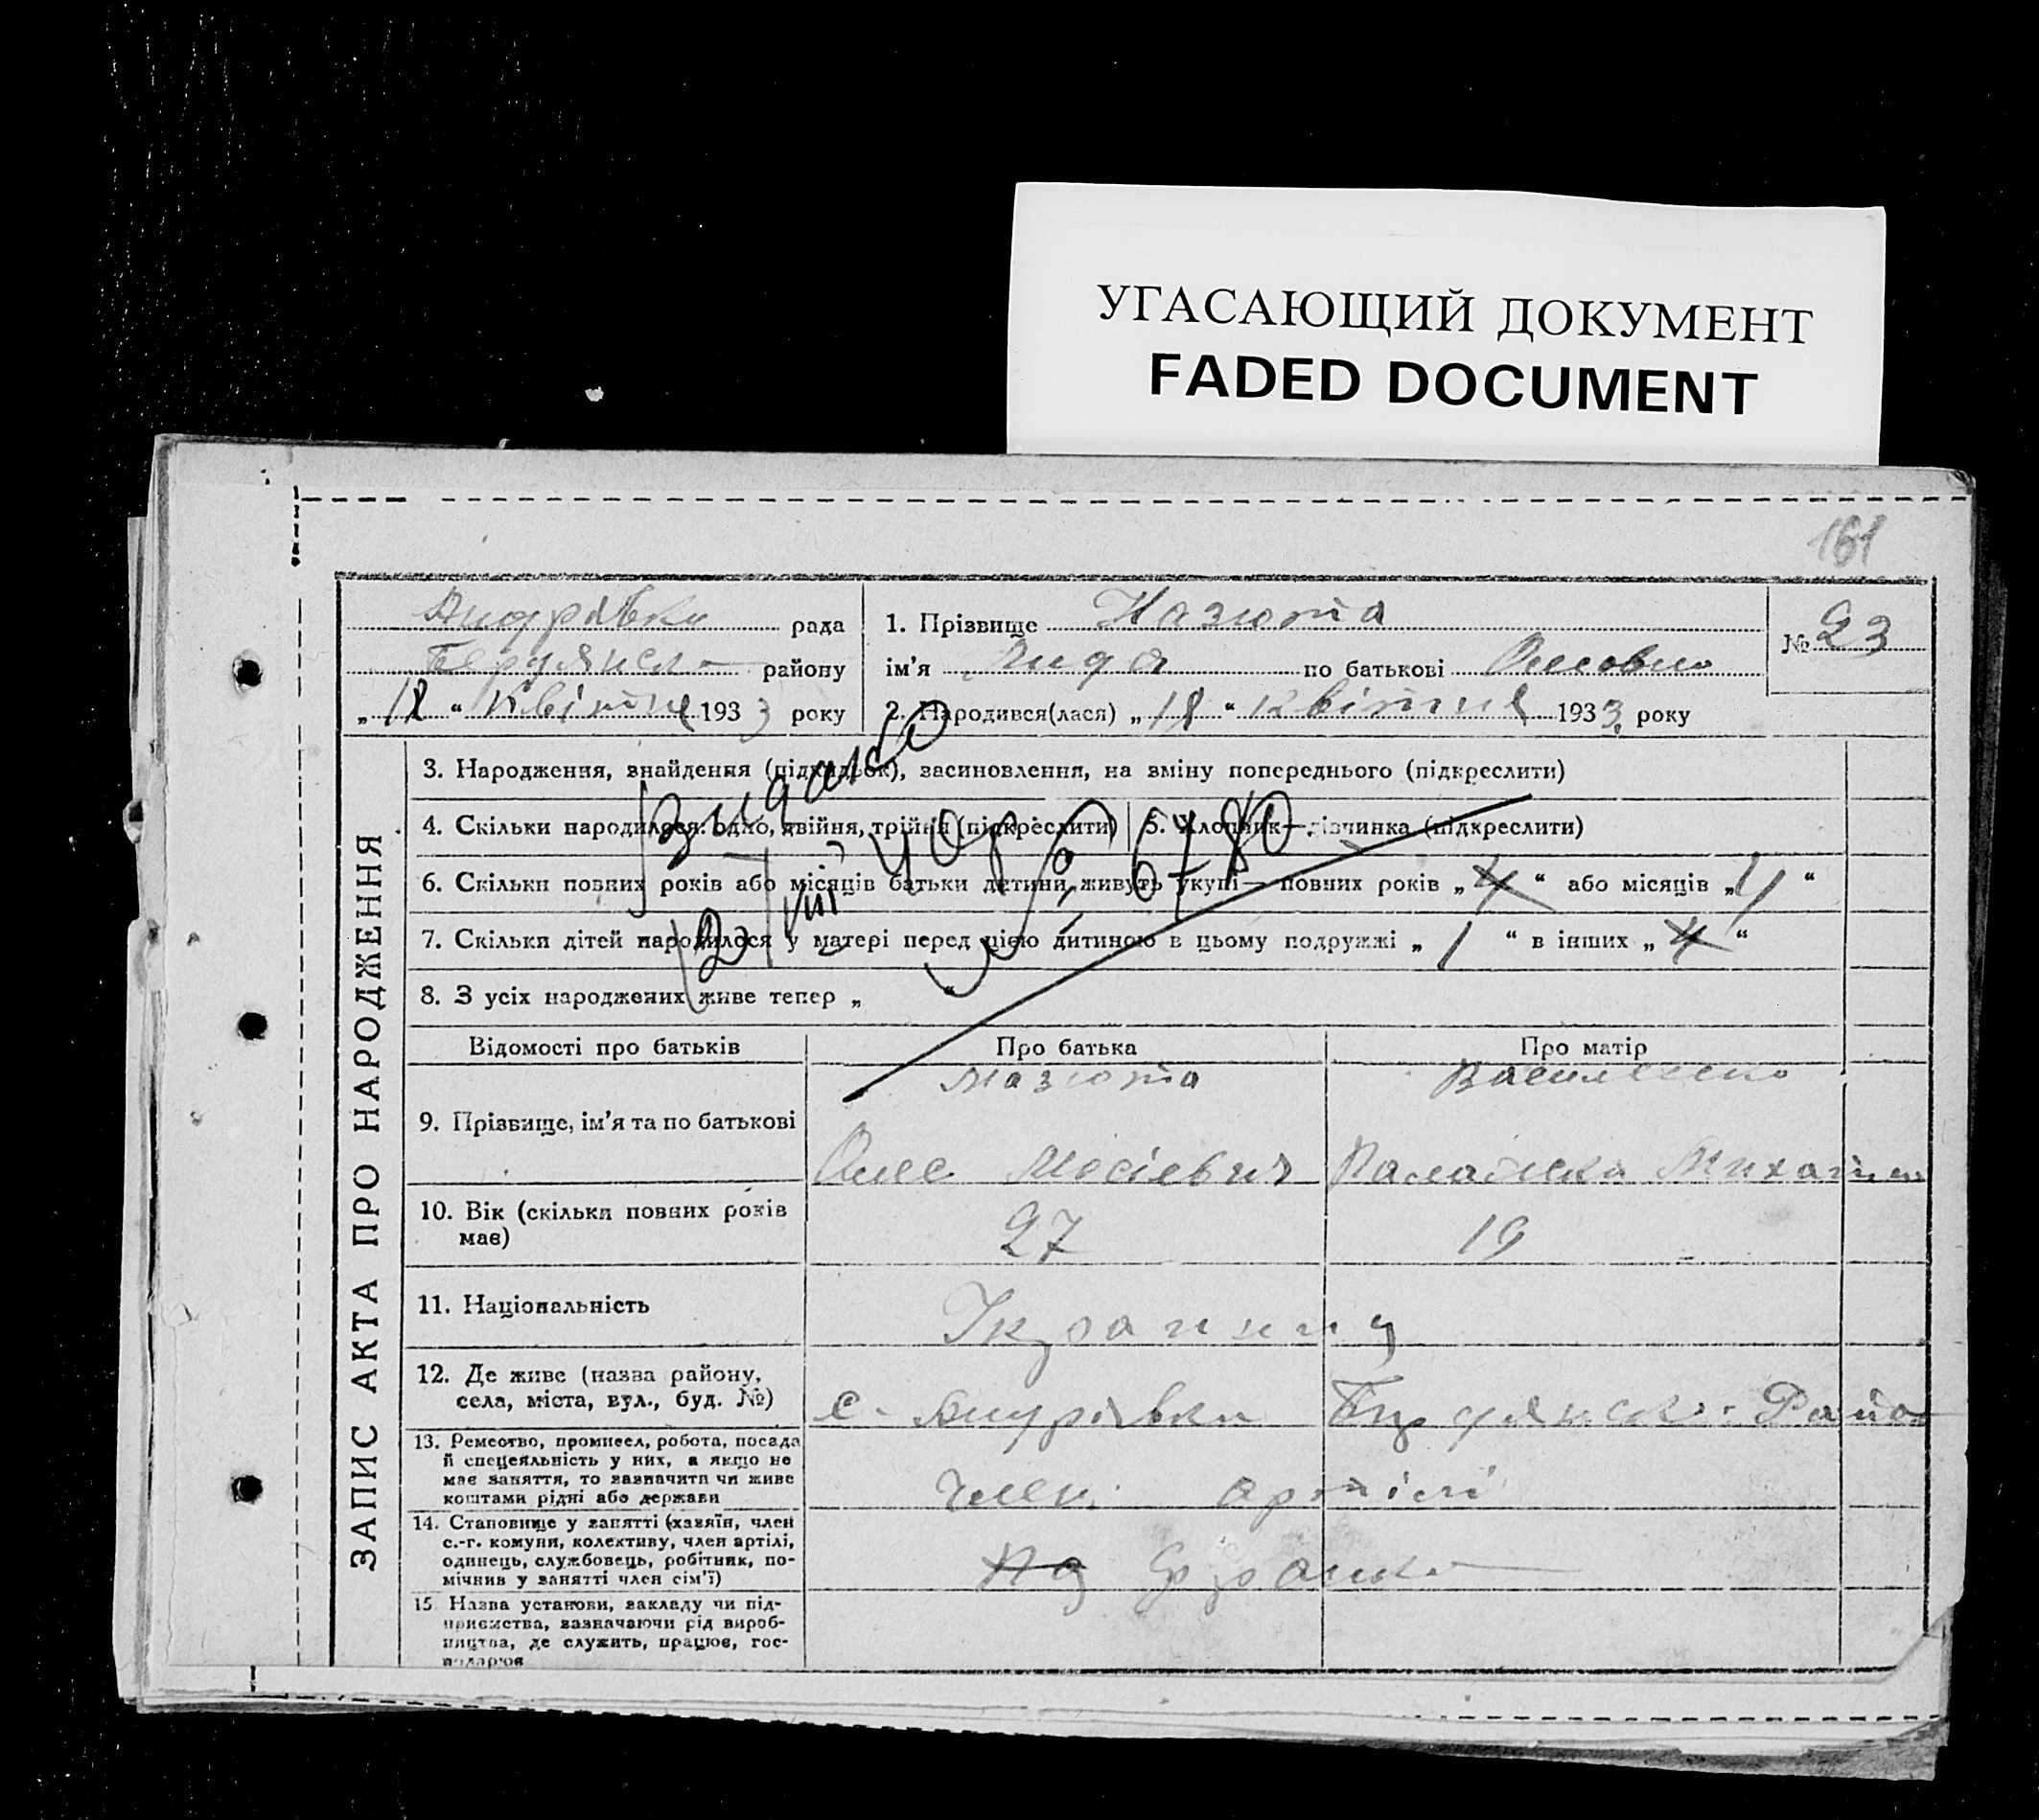 УГАСАЮЩИЙ ДОКУМЕНТ
FADED DOCUMENT
161
рада
району
„ 18 “ Квітня 1933 року
1. Прізвище Мазюта
ім’я Лида по батькові
2. Народився(лася) „ 18 “ Квітня 1933 року
№ 23
ЗАПИС АКТА ПРО НАРОДЖЕННЯ
3. Народження, знайдення (підкидьок), засиновлення, на вміну попереднього (підкреслити)
4. Скільки народилося: одно, двійня, трійня (підкреслити)
5. Хлопчик—дівчинка (підкреслити)
6. Скільки повних років або місяців батьки дитини живуть укупі— повних років „ “ або місяців „ 4 “
7. Скільки дітей народилося у матері перед цією дитиною в цьому подружжі „ 1 “ в інших „ “
8. З усіх народжених живе тепер „ “
Відомості про батьків
Про батька
Про матір
9. Прізвище, ім’я та по батькові
Мазюта
Василенко
10. Вік (скільки повних років
має)
27
19
11. Національність
12. Де живе (назва району,
села, міста, вул., буд. №)
с.
13. Ремество, промисел, робота, посада
й спеціяльність у них, а якщо не
має заняття, то зазначити чи живе
коштами рідні або держави
член артілі
14. Становище у занятті (хазяїн, член
с.-г. комуни, колективу, член артілі,
одинець, службовець, робітник, по-
мічник у занятті член сім’ї)
15 Назва установи, закладу чи під-
приємства, зазначаючи рід вироб-
ництва, де служить, працює, гос-
подарює